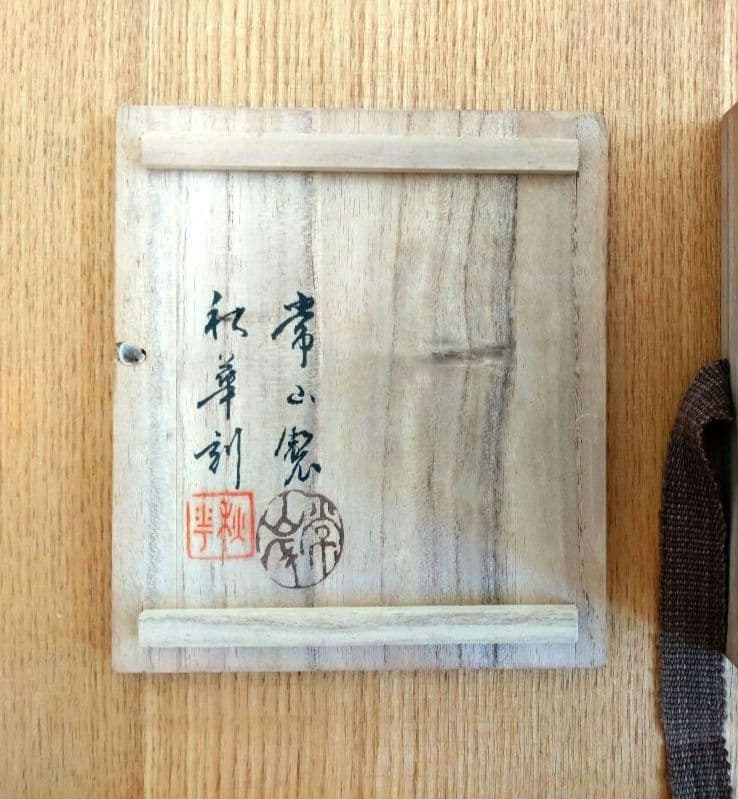 常山製
秋華刻
秋華
常山